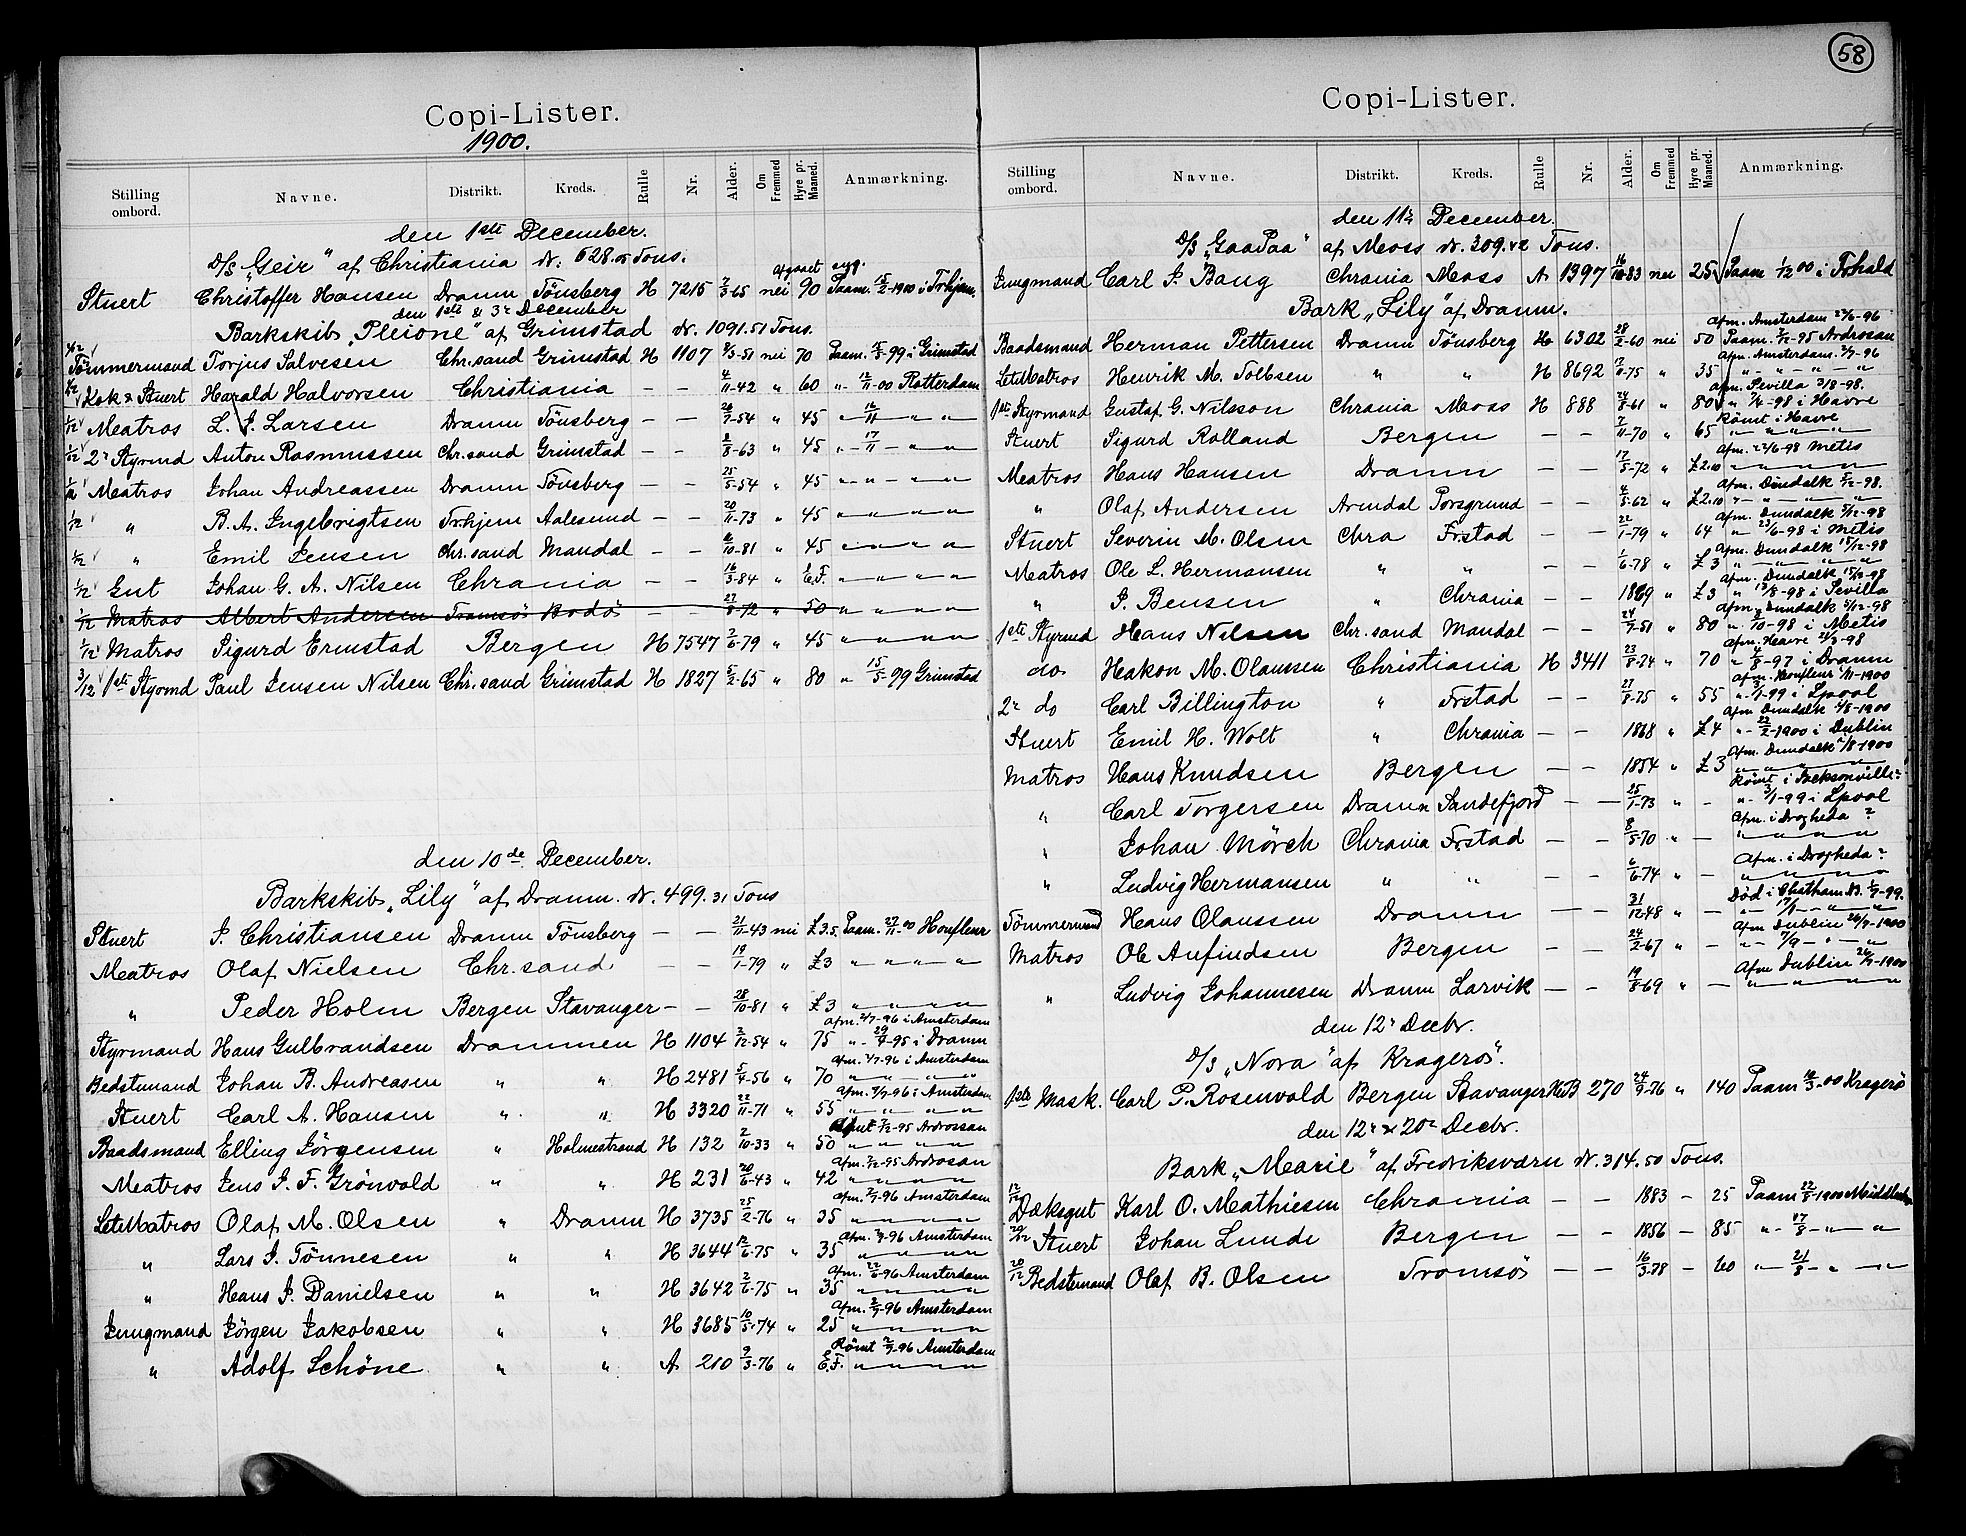 58
Copi-Lister.
1900.
Stilling ombord. Navne. Distrikt. Kreds. Rulle Nr. Alder. Om Fremmed Hyre pr. Maaned. Anmærkning.
den 1ste December.
D/S „Geir" af Christiania Dr. 628.05 Tons.
Afgaaet syg.
Stuert Christoffer Hansen Dramn Tönsberg H 7215 2/3-65 nei 90 Paam. 15/2-1900 i Trhjem.
den 1ste & 3e December
Barkskib „Pleione" af Grimstad Dr. 1091.51 Tons.
Tömmermand Torjus Salvesen Chr.sand Grimstad H 1107 2/3-51 nei 70 Paam. -99 i Grimstad
Kok & Stuert Harald Halvorsen Christiania — — 4/11-42 " 60 " 12/11-00 Rotterdam
1/12 Matros L. J. Larsen Dramn Tönsberg — — 26/7-54 " 45 " 16/11 — " — "
1/12 2e Styrmd Anton Rasmussen Chr.sand Grimstad — — 8/8-63 " 45 " 17/11 — " — "
1/12 Matros Johan Andreassen Dramn Tönsberg — — 25/5-54 " 45 " — " — " — "
1/12 " B. A. Ingebrigtsen Trhjem Aalesund — — 20/11-73 " 45 " — " — " — "
1/12 " Emil Jensen Chr.sand Mandal — — 6/10-81 " 45 " — " — " — "
1/12 Gut Johan G. A. Nilsen Chrania — — 16/3-84 " E.F. " — " — " — "
1/12 Matros Albert Andersen Tromsö Bodö — — 27/8-72 " 50 " — " — " — "
1/12 Matros Sigurd Ermstad Bergen H 7547 2/6-79 " 45 " — " — " — "
3/12 1ste Styrmd Paul Jensen Nilsen Chr.sand Grimstad H 1827 5/2-65 " 80 " 15/5-99 Grimstad
den 10de December.
Barkskib „Lily" af Dramn. Dr. 499.31 Tons
Stuert J. Christiansen Dramn Tönsberg — — 21/11-43 nei £3.5. Paam. 27/11-00 Honfleur
Matros Olaf Nielsen Chr.sand — — 19/1-79 " £3 " — " — " — "
" Peder Holm Bergen Stavanger — — 28/10-81 " £3 " — " — " — "
Afm. 2/7-96 i Amsterdam
Styrmand Hans Gulbrandsen Drammen H 1104 2/12-54 " 75 " 29/9-95 i Dramn
Afm. 2/7-96 i Amsterdam
Bedstemand Johan B. Andreasen " " H 2481 5/4-56 " 70 " — " — " — "
Afm. 2/7-96 i Amsterdam
Stuert Carl A. Hansen " " H 3320 22/11-71 " 55 " — " — " — "
2/12-95 Ardrossan
Baadsmand Elling Jörgensen " Holmestrand H 132 2/10-33 " 50 " — " — " — "
Afm. 2/12-95 Ardrosan
Matros Jens J. F. Grönvold " " H 231 20/6-43 " 42 " — " — " — "
Afm. 2/7-96 Amsterdam
LetMatros Olaf M. Olsen " Dramn H 3735 25/2-76 " 35 " — " — " — "
Afm. 2/7-96 Amsterdam
" Lars J. Tönnesen " " H 3644 12/6-75 " 35 " — " — " — "
Afm. 22/6-96 Amsterdam
" Hans J. Danielsen " " H 3642 2/6-75 " 35 " — " — " — "
Afm. 2/7-96 Amsterdam
Jungmand Jörgen Jakobsen " " H 3685 10/5-74 " 25 " — " — " — "
Römt 2/7-96 Amsterdam
" Adolf Schöne " " A 210 9/3-76 " E.F. " — " — " — "
Copi-Lister.
Stilling ombord. Navne. Distrikt. Kreds. Rulle Nr. Alder. Om Fremmed Hyre pr. Maaned. Anmærkning.
den 11te December.
D/S „GaaPaa" af Moss Dr. 309.42 Tons.
Jungmand Carl J. Bang Chrania Moss A 1397 16/10-83 nei 25 Paam 1/12 00 i Frhald
Bark „Lily" af Dramn.
Afm. Amsterdam 22/6-96
Baadsmand Herman Pettersen Dramn Tönsberg H 6302 28/2-60 nei 50 Paam. 2/12-95 Ardrossan
Afm. Amsterdam. 2/7-96
LetMatros Henrik M. Tolbsen " " H 8692 17/11-75 " 35 " — " — " — "
Afm. Sevilla 3/8-98.
1ste Styrmand Gustaf G. Nilsson Chrania Moss H 888 24/8-61 " 80 " 7/4-98 i Havre
Römt i Havre
Stuert Sigurd Rolland Bergen — — 7/11-70 " 65 " — " — " — "
Afm. 22/6-98 Metis
Matros Hans Hansen Dramn — — 17/5-72 " £2.10 " — " — " — "
Afm. Dundalk 5/12-98.
" Olaf Andersen Arendal Porsgrund — — 4/5-62 " £2.10 " — " — " — "
Afm. Dundalk 5/12-98
Stuert Severin M. Olsen Chra Frstad — — 22/1-79 " 64 " 23/6-98 i Metis
Afm. Dundalk 15/12-98
Matros Ole L. Hermansen " " — — 1/6-78 " £3 " — " — " — "
Afm. Dundalk 15/12-98
" J. Bensen " Chrania — — 1869 " £3 " 13/8-98 i Sevilla
Afm. Dundalk 5/12-98
1ste Styrmd Hans Nilsen Chr.sand Mandal — — 24/7-51 " 80 " /10-98 i Metis
Afm. Havre 2/3-98
do Hakon M. Olaussen Christiania H 3411 23/8-74 " 70 " 4/8-97 i Dramn
Afm. Honfleur /11-1900
2e do Carl Billington " Frstad — — 27/8-75 " 55 " 3/1-99 i Lpool
Afm Dundalk 2/8-1900
Stuert Emil H. Wolt " Chrania — — 1868 " £4 " 22/2-1900 i Dublin
Afm. Dundalk 2/8-1900
Matros Hans Knudsen Bergen — — 1854 " £3 " — " — " — "
Römt i Jacksonville?
" Carl Torgersen Dramn Sandefjord — — 25/1-73 " - " 3/1-99 i Lpool
Afm. i Drogheda ?
" Johan Mörch Chrania Frstad — — 8/5-70 " — " — " — " — "
Afm. i Drogheda ?
" Ludvig Hermansen " " — — 6/6-74 " — " — " — " — "
Död i Chatham N.B. 1/9-99.
Tömmermand Hans Olaussen Dramn — — 31/12-48 " — " 17/1 — " — "
Afm Dublin 26/7-1900
Matros Ole Anfindsen Bergen — — 24/2-67 " — " 7/9 — " — "
Afm Dublin 26/7-1900
" Ludvig Johannesen Dramn Larvik — — 19/8-69 " — " — " — " — "
den 12e Decbr.
D/S „Nova" af Kragerö.
1ste Mask. Carl P. Rosenvold Bergen Stavanger HB 270 24/9-76 " 140 Paam 10/3-00 Kragerö
den 12e & 20e Decbr.
Bark „Marie" af Fredriksværn Dr. 314.50 Tons.
12/12 Dæksgut Karl O. Mathiesen Chrania — — 1883 — 25 Paam 22/8-1900
20/12 Stuert Johan Lunde Bergen — — 1856 — 85 " 17/8 — " — "
20/12 Bedstemand Olaf B. Olsen Tromsö — — 16/3-78 — 60 " 21/8 — " — "